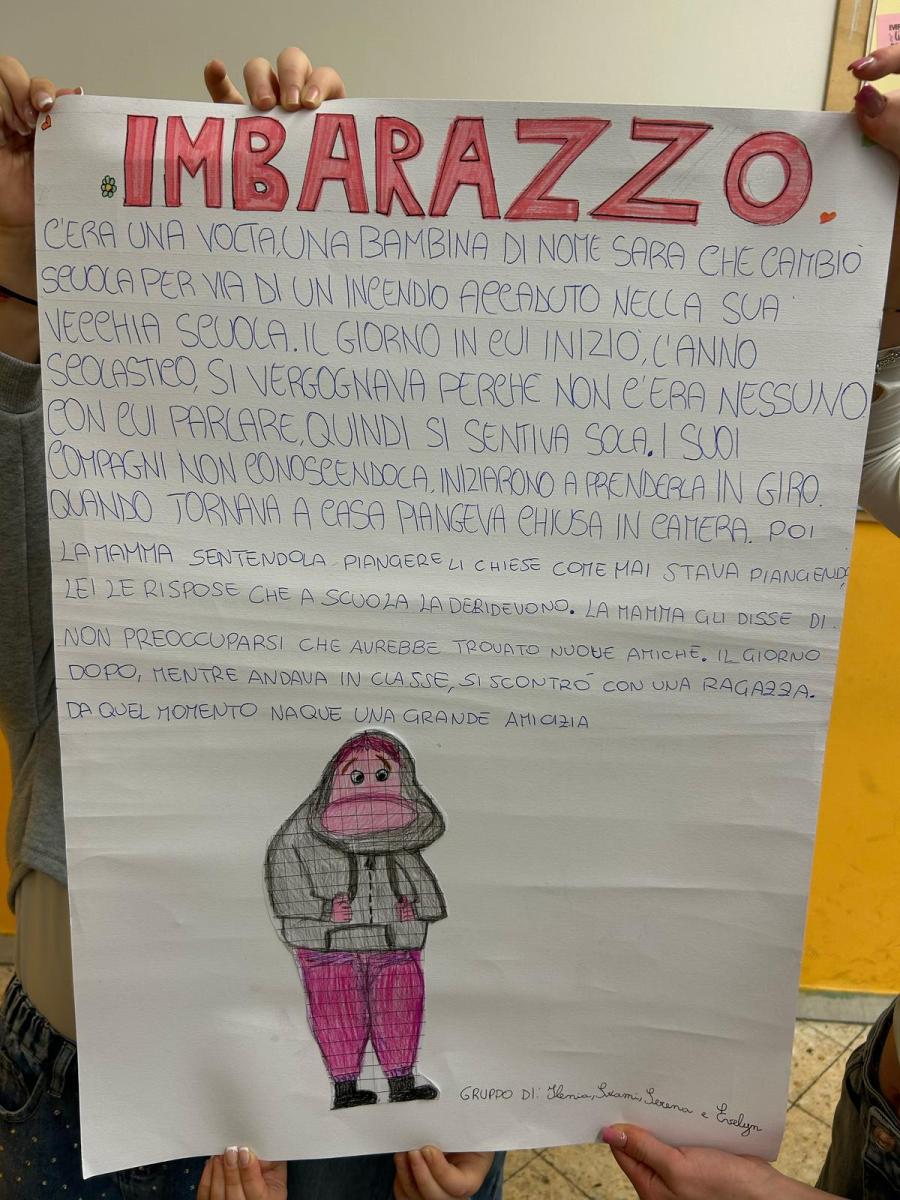 IMBARAZZO
C'ERA UNA VOLTA, UNA BAMBINA DI NOME SARA CHE CAMBIÒ
SCUOLA PER VIA DI UN INCENDIO ACCADUTO NELLA SUA
VECCHIA SCUOLA. IL GIORNO IN CUI INIZIÒ, L'ANNO
SCOLASTICO, SI VERGOGNAVA PERCHE NON C'ERA NESSUNO
CON CUI PARLARE, QUINDI SI SENTIVA SOLA. I SUOI
COMPAGNI NON CONOSCENDOLA, INIZIARONO A PRENDERLA IN GIRO.
QUANDO TORNAVA A CASA PIANGEVA CHIUSA IN CAMERA. POI
LA MAMMA SENTENDOLA PIANGERE LI CHIESE COME MAI STAVA PIANGENDO
LEI LE RISPOSE CHE A SCUOLA LA DERIDEVONO. LA MAMMA GLI DISSE DI
NON PREOCCUPARSI CHE AVREBBE TROVATO NUOVE AMICHE. IL GIORNO
DOPO, MENTRE ANDAVA IN CLASSE, SI SCONTRÓ CON UNA RAGAZZA.
DA QUEL MOMENTO NAQUE UNA GRANDE AMICIZIA
GRUPPO DI: Ilenia, Siami, Serena e Evelyn